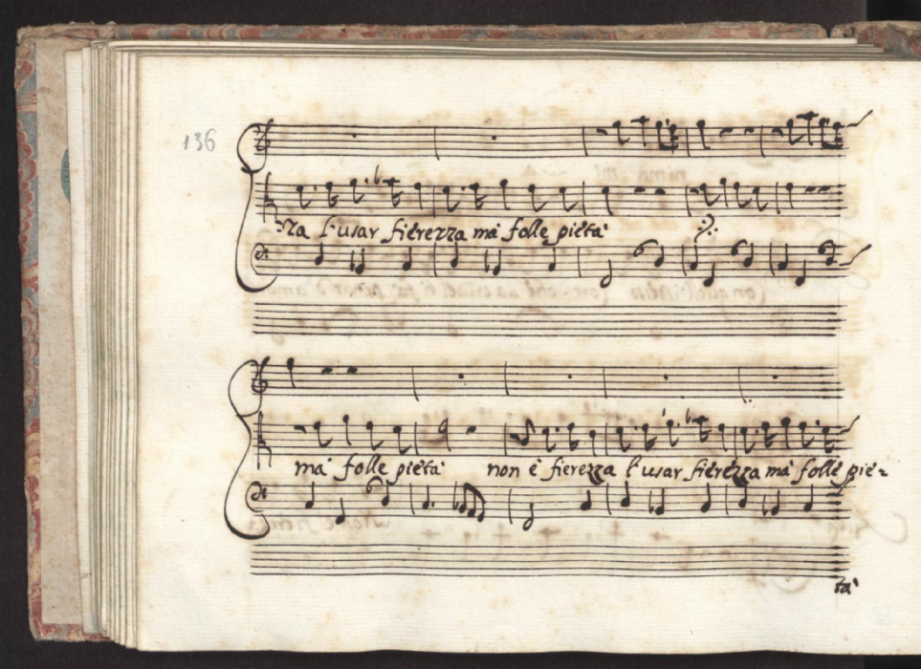 136
za l'usar fierezza mà folle pietà
mà folle pietà non è fierezza l'usar fierezza mà folle pie=
tà